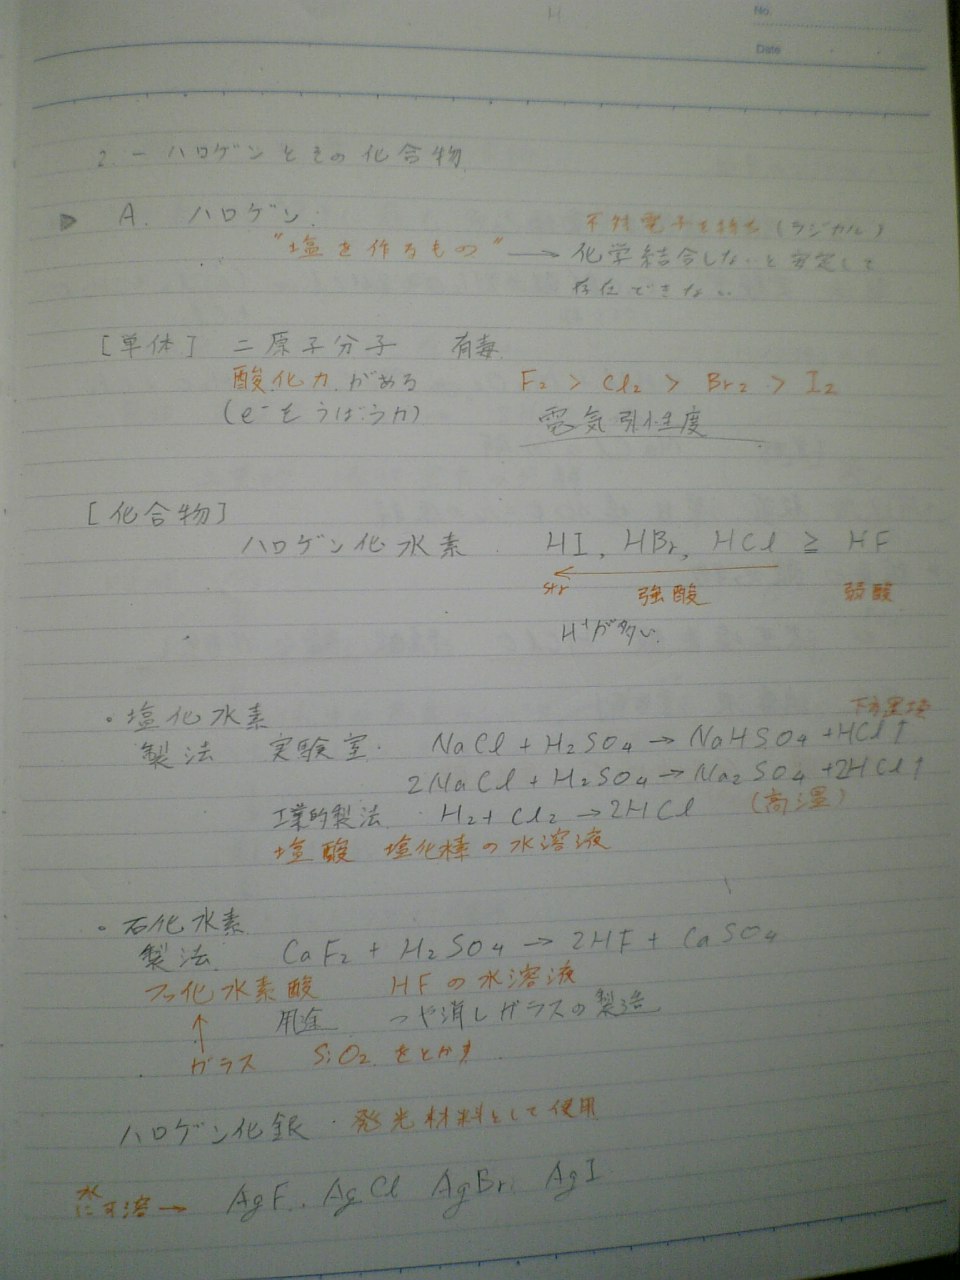 No.
Date
2. ー ハロゲンとその化合物
A. ハロゲン
不対電子を持つ (ラジカル)
"塩を作るもの" → 化学結合しないと安定して
存在できない
[単体] 二原子分子 有毒
酸化力がある F2 > Cl2 > Br2 > I2
(e-をうばう力) 電気引性度
[化合物]
ハロゲン化水素 HI, HBr, HCl ≧ HF
強酸 弱酸
H+が多い
・塩化水素
製法 実験室. NaCl + H2SO4 → NaHSO4 + HCl↑
2NaCl + H2SO4 → Na2SO4 + 2HCl↑
工業的製法 H2 + Cl2 → 2HCl (高温)
塩酸 塩化の水溶液
・化水素
製法 CaF2 + H2SO4 → 2HF + CaSO4
フッ化水素酸 HFの水溶液
↑ 用途 つや消しガラスの製造
ガラス SiO2をとかす
ハロゲン化銀 ・ 発光材料として使用
水に → AgF. AgCl AgBr. AgI